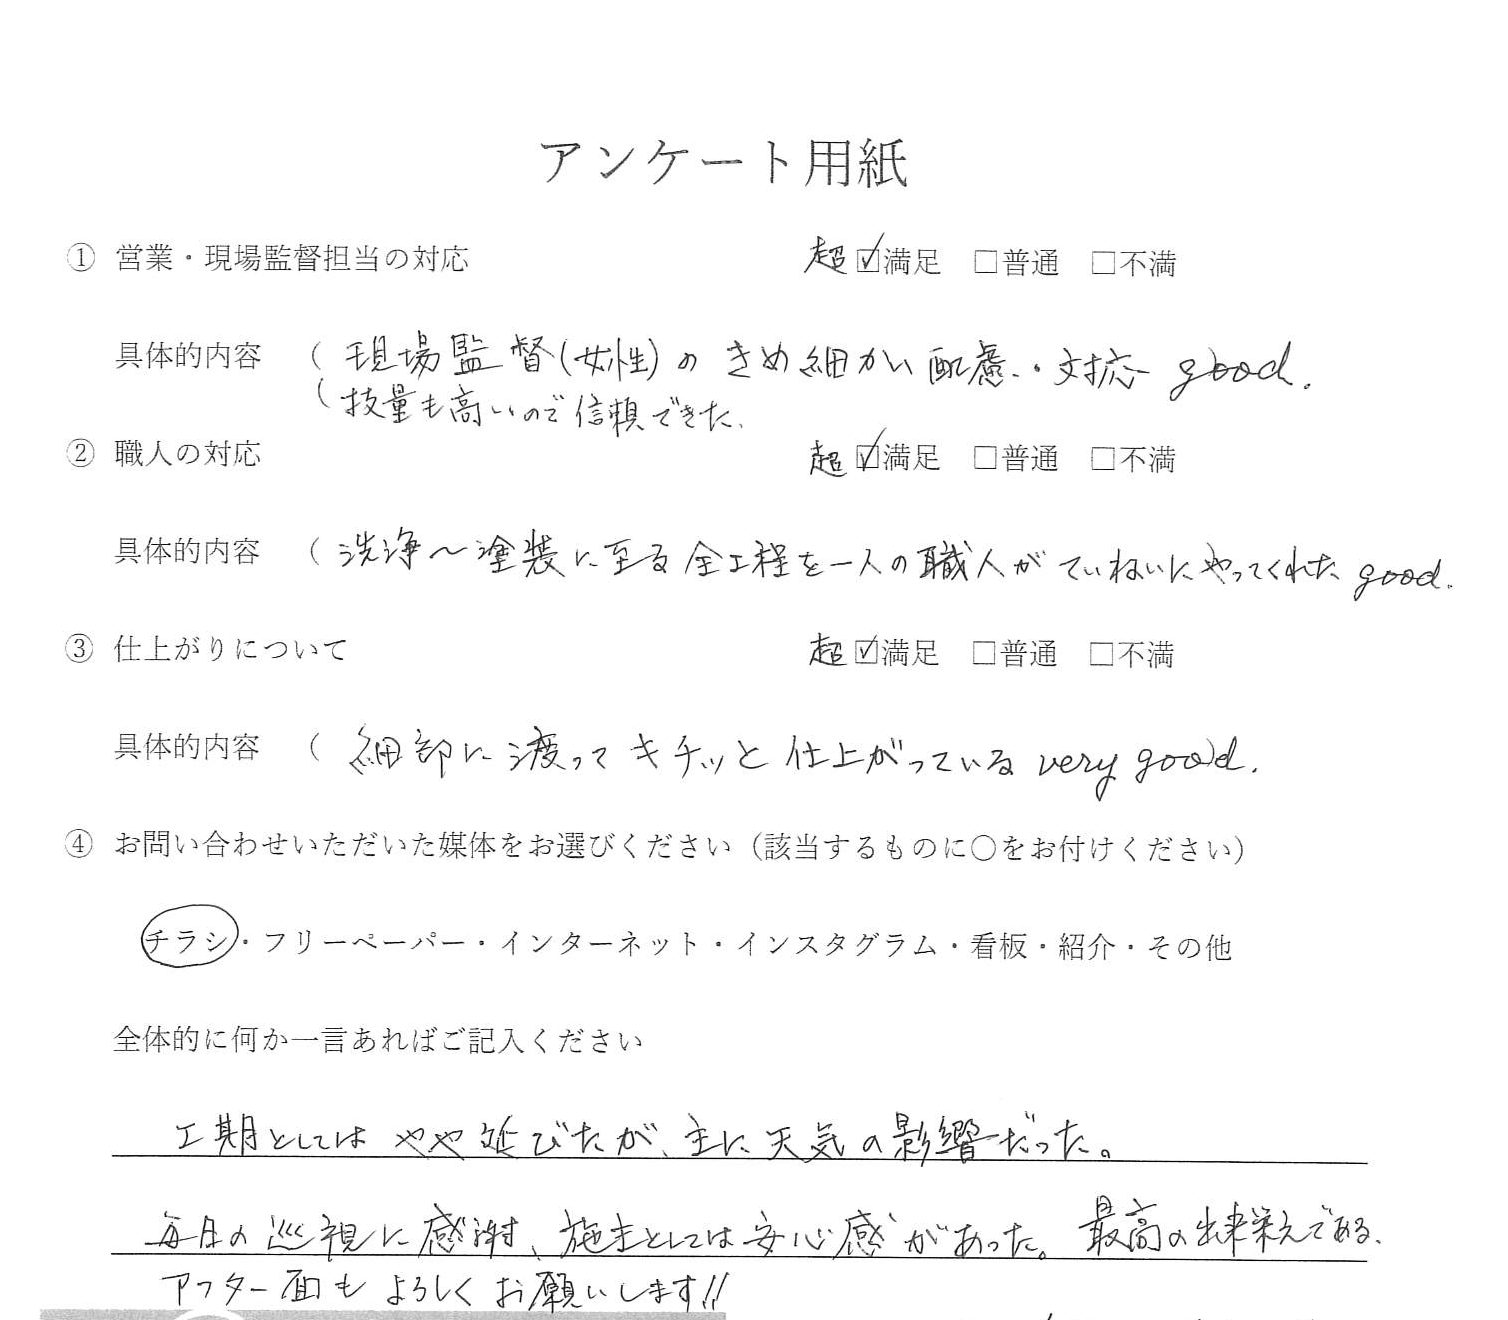 アンケート用紙
① 営業・現場監督担当の対応 超 ☑満足 □普通 □不満
具体的内容 ( 現場監督(女性)の きめ細かい配慮・対応 good.
( 技量も高いので信頼できた.
② 職人の対応 超 ☑満足 □普通 □不満
具体的内容 ( 洗浄～塗装に至る全工程を一人の職人がていねいにやってくれた good.
③ 仕上がりについて 超 ☑満足 □普通 □不満
具体的内容 ( 細部に渡ってキチッと仕上がっている very good.
④ お問い合わせいただいた媒体をお選びください（該当するものに〇をお付けください）
チラシ・フリーペーパー・インターネット・インスタグラム・看板・紹介・その他
全体的に何か一言あればご記入ください
工期としてはやや延びたが、主に天気の影響だった。
毎日の巡視に感謝、施主としては安心感があった。最高の出来栄えである、
アフター面もよろしくお願いします!!